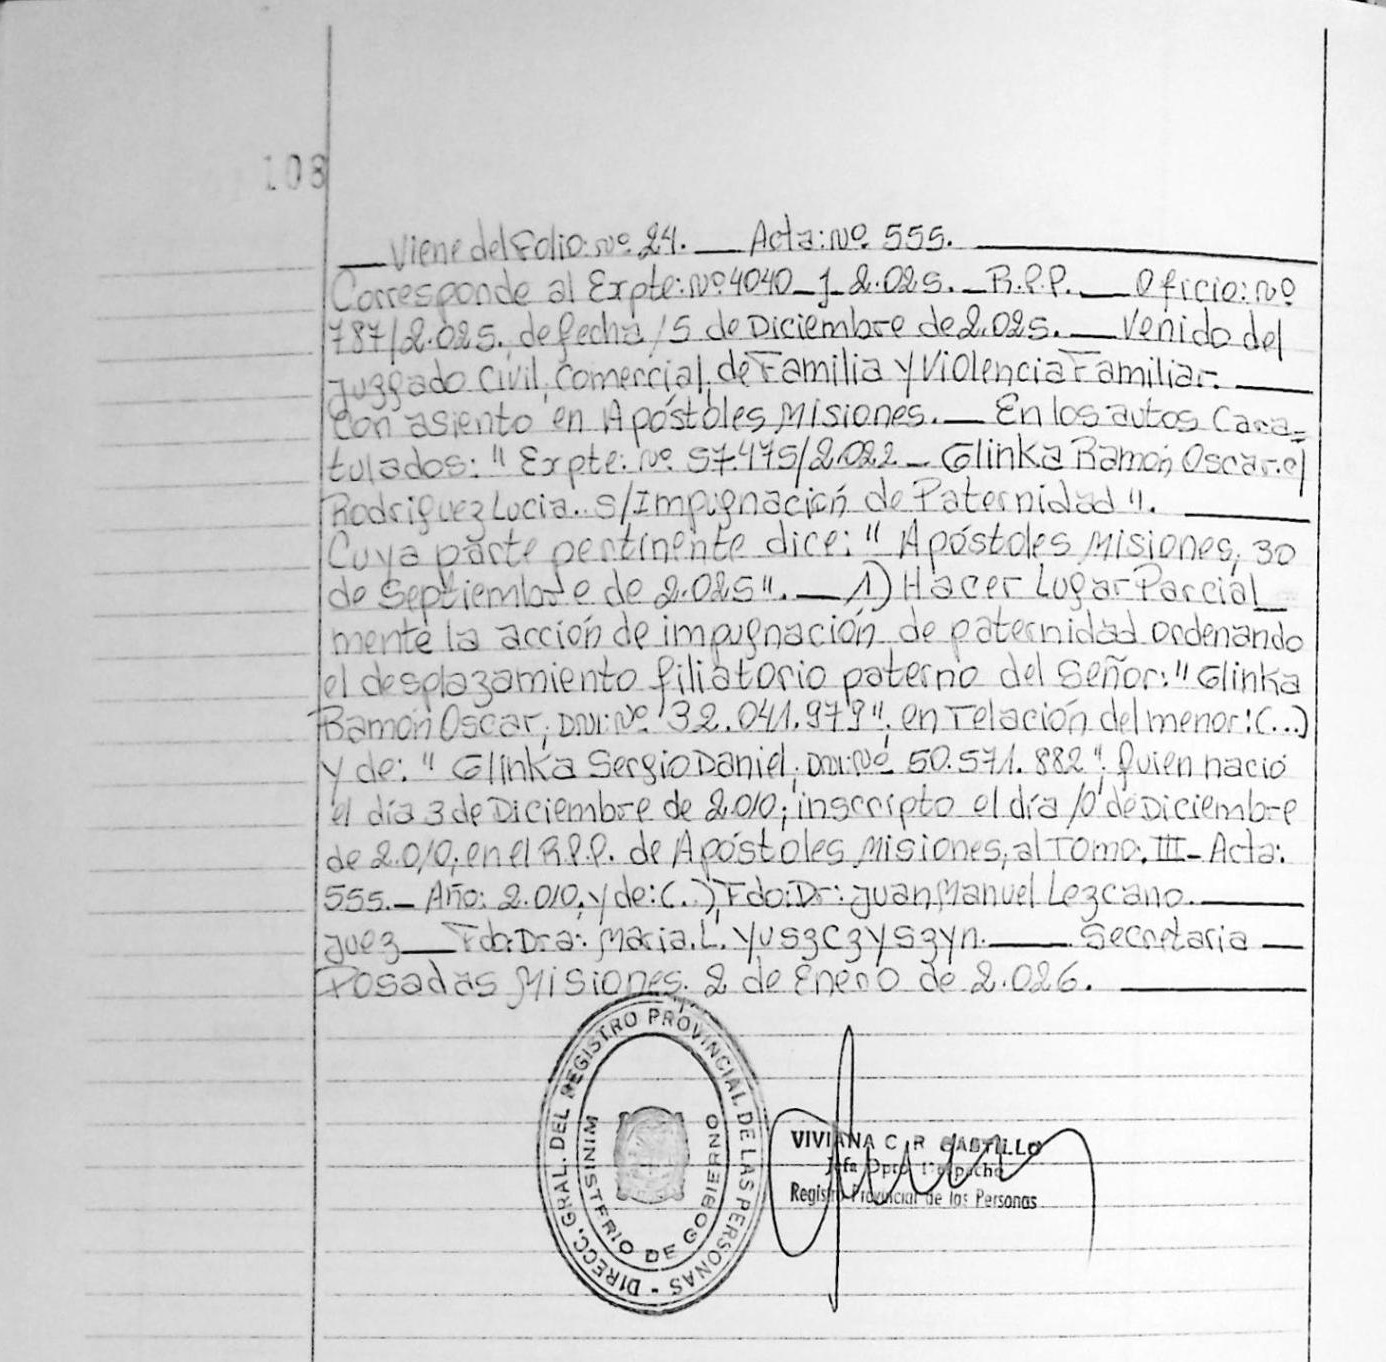 108
Viene del Folio: Nº 24. — Acta: Nº 555.
Corresponde al Expte: Nº 4040-J-2.025. R.P.P. — Oficio: Nº
787/2.025. de fecha 15 de Diciembre de 2.025. — Venido del
Juzgado Civil, Comercial, de Familia y Violencia Familiar.
Con asiento en Apóstoles Misiones. — En los autos Cara=
tulados: " Expte: Nº 57.475/2.022 - Glinka Ramón Oscar. c/
Rodriguez Lucia. S/Impugnación de Paternidad ".
Cuya parte pertinente dice: " Apóstoles Misiones, 30
de Septiembre de 2.025". — 1) Hacer Lugar Parcial_
mente la acción de impugnación de paternidad ordenando
el desplazamiento filiatorio paterno del Señor: " Glinka
Ramón Oscar; DNI: Nº 32.041.979". en relación del menor: (...)
y de: " Glinka Sergio Daniel; DNI: Nº 50.571.882", Quien nació
el día 3 de Diciembre de 2.010; inscripto el día 10 de Diciembre
de 2.010, en el R.P.P. de Apóstoles Misiones, al Tomo: III - Acta:
555. - Año: 2.010, y de: (..) Fdo: Dr: Juan Manuel Lezcano.
Juez — Fdo: Dra: Maria. L. Yuszczyszyn. — Secretaria —
Posadas Misiones. 2 de Enero de 2.026.
DIRECC. GRAL. DEL REGISTRO PROVINCIAL DE LAS PERSONAS -
MINISTERIO DE GOBIERNO
VIVIANA C. R. CASTILLO
Jefa Dpto. Despacho
Registro Provincial de las Personas